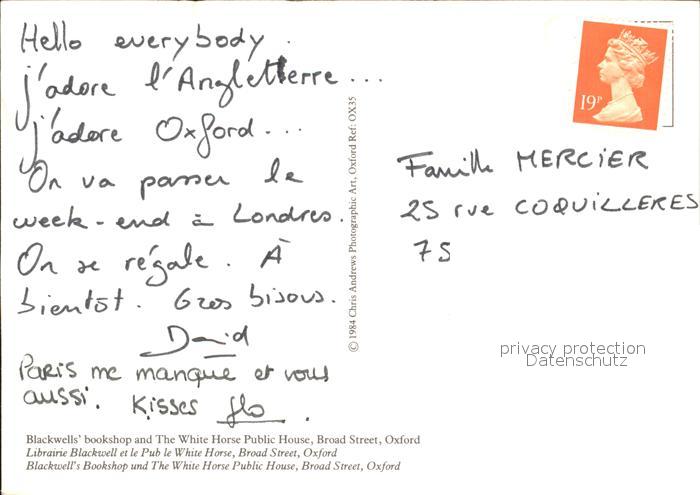 Hello everybody.
j'adore l'Angleterre...
j'adore Oxford...
On va passer le
week-end à Londres.
On se régale. À
bientôt. Gros bisous.
David
Paris me manque et vous
aussi. Kisses flo.
19P
Famille MERCIER
25 rue COQUILLERES
75
© 1984 Chris Andrews Photographic Art, Oxford Ref: OX35
privacy protection
Datenschutz
Blackwells' bookshop and The White Horse Public House, Broad Street, Oxford
Librairie Blackwell et le Pub le White Horse, Broad Street, Oxford
Blackwell's Bookshop und The White Horse Public House, Broad Street, Oxford